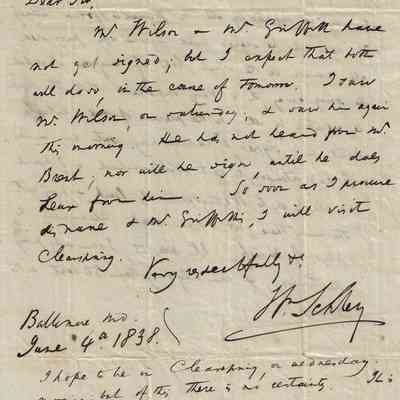 Dear Sir,
Mr Wilson & Mr Griffith have
not yet signed; but I expect that both
will do so, in the course of tomorrow. I saw
Mr. Wilson, on saturday, & saw him again
this morning. He has not heard from Mr.
Brent; nor will he sign, until he does
hear from him. So soon as I procure
his name & Mr. Griffith's, I will visit
Clearspring.
Very respectfully &c.
Wm Schley
Baltimore Md.
June 4th 1838.
I hope to be in Clearspring, on wednesday
but of this there is no certainty. It is